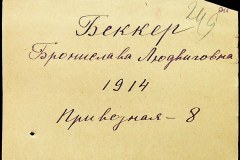 249
Беккер
Бронислава Людвиговна
1914
Приводная - 8